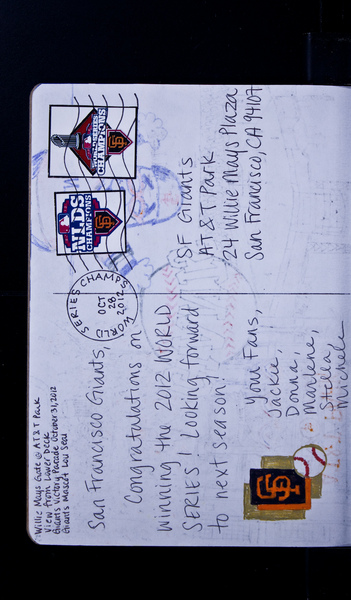 Willie Mays Gate @ AT&T Park
View from Lower Deck
Giants Victory Parade October 31, 2012
Giants Mascot Lou Seal
San Francisco Giants,
Congratulations on
winning the 2012 WORLD
SERIES! Looking forward
to next season!
Your Fans,
Jackie,
Donna,
Marlene,
Stella,
Michele
WORLD SERIES CHAMPS
OCT
28
2012
NLDS
CHAMPIONS
SF
WORLD SERIES
CHAMPIONS
SF
SF Giants
AT&T Park
24 Willie Mays Plaza
San Francisco, CA 94107
SF